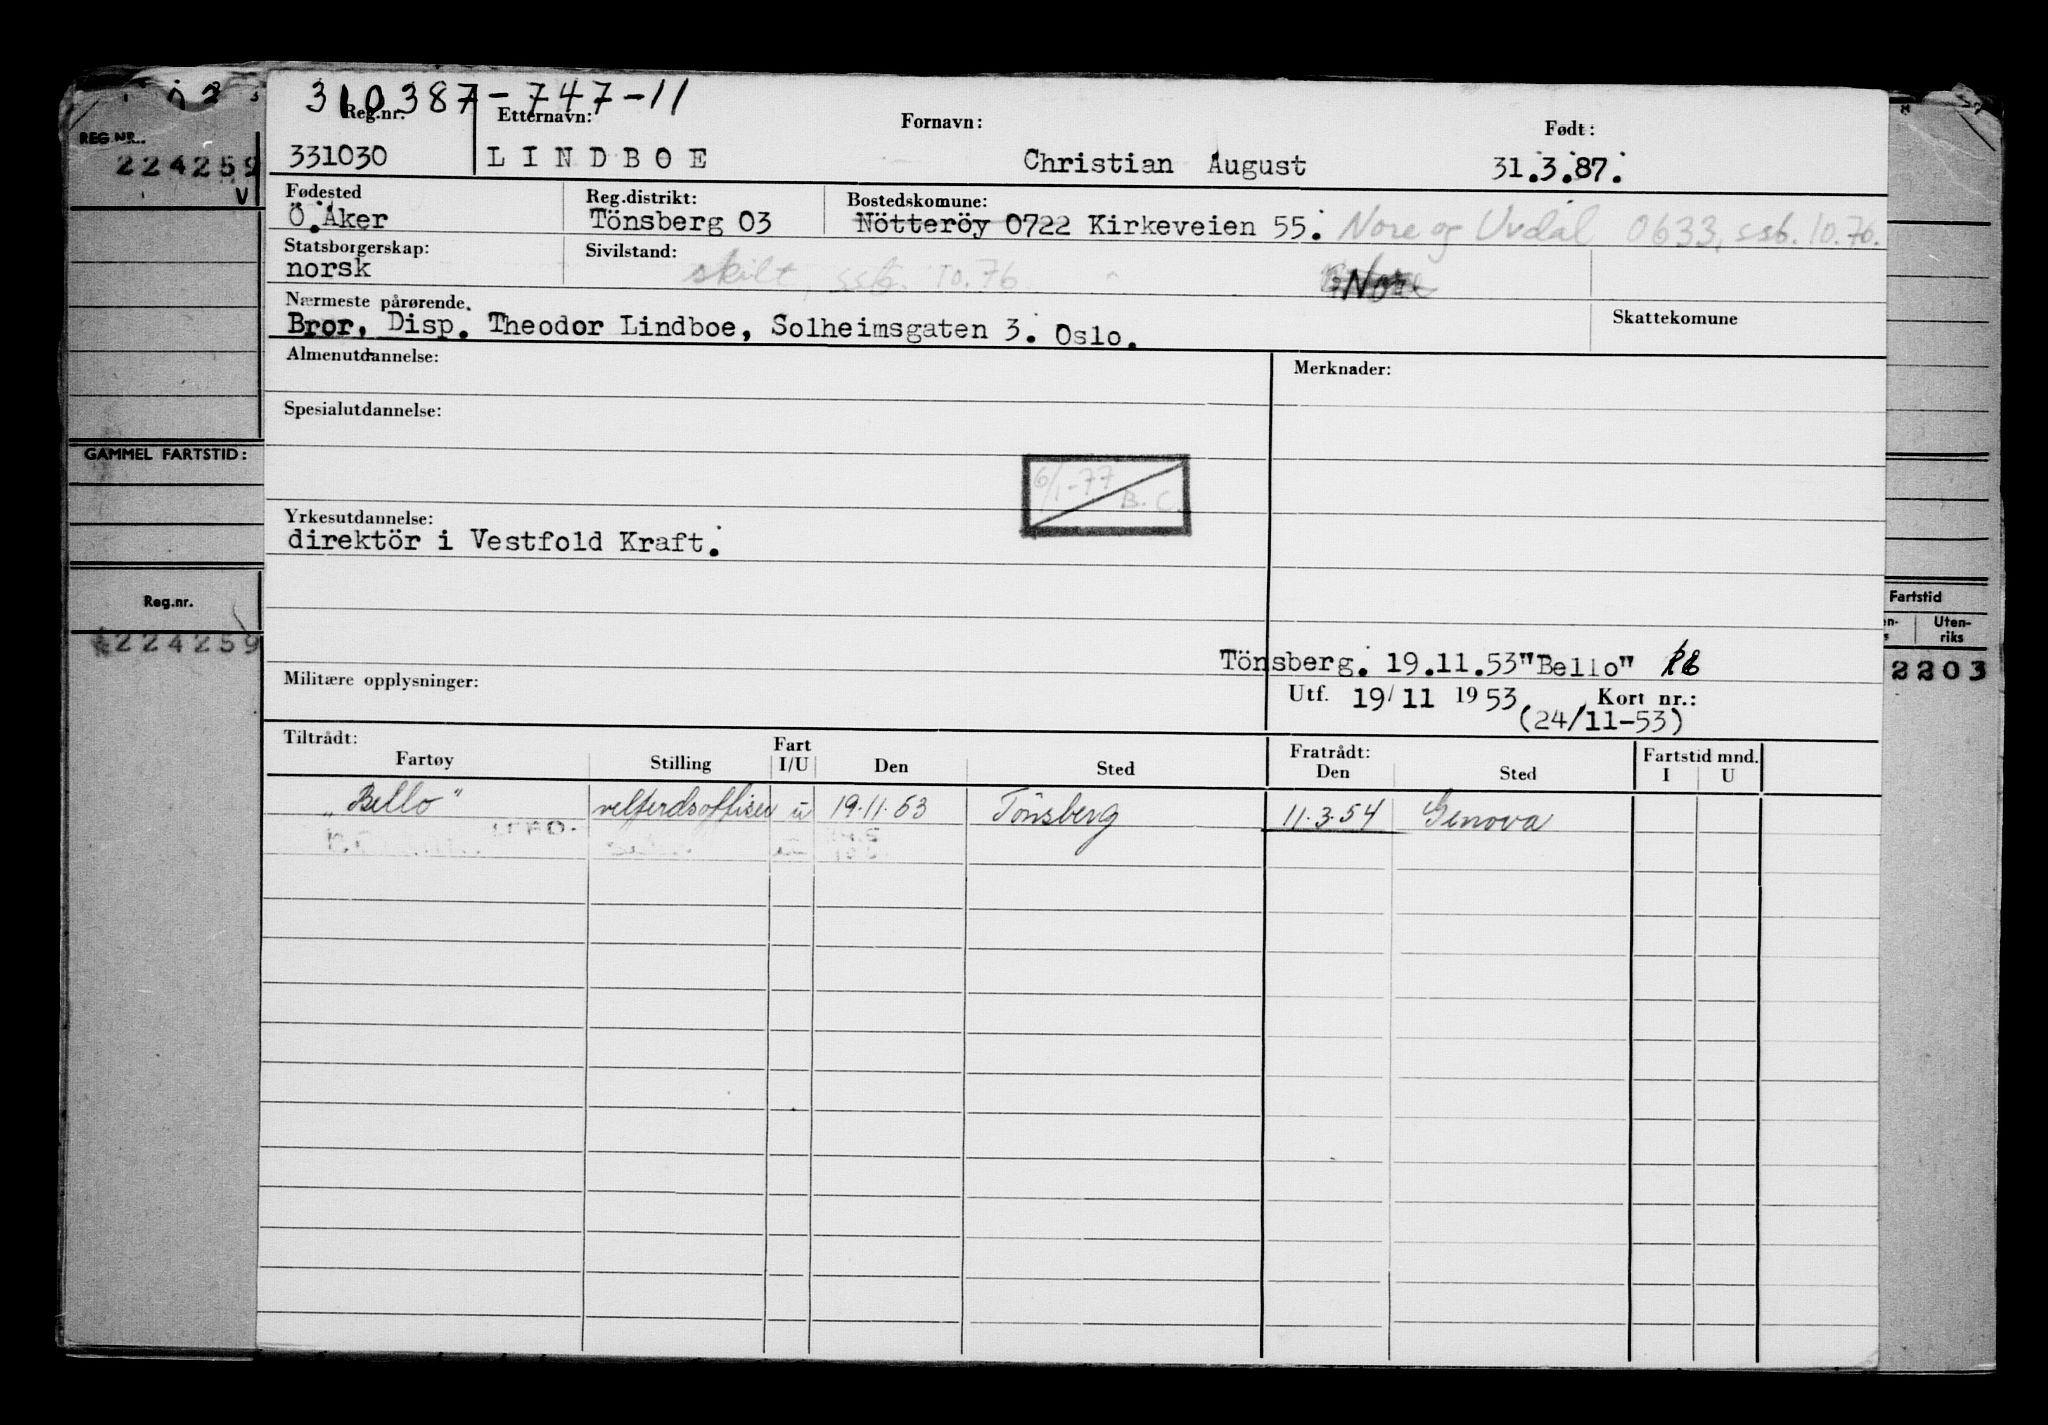 310387-747-11
Reg.nr. Etternavn: Fornavn: Født:
331030 LINDBOE Christian August 31.3.87.
Fødested Reg.distrikt: Bostedskomune:
Ö.Aker Tönsberg 03 Nötteröy 0722 Kirkeveien 55. Nore og Uvdal 0633, ssb. 10.76.
Statsborgerskap: Sivilstand:
norsk skilt, ssb. 10.76 Nore
Nærmeste pårørende. Skattekomune
Bror, Disp. Theodor Lindboe, Solheimsgaten 3. Oslo.
Almenutdannelse: Merknader:
Spesialutdannelse:
6/1-77 B.C.
Yrkesutdannelse:
direktör i Vestfold Kraft.
Tönsberg. 19.11.53 "Bello"
Militære opplysninger: Utf. 19/11 1953 Kort nr.:
(24/11-53)
Tiltrådt: Fart Fratrådt: Fartstid mnd.
Fartøy Stilling I/U Den Sted Den Sted I U
"Bello" velferdsoffiser u 19.11.53 Tönsberg 11.3.54 Genova
REG.NR..
224259
V
GAMMEL FARTSTID:
Reg.nr.
224259
Fartstid
Uten-
riks
2203